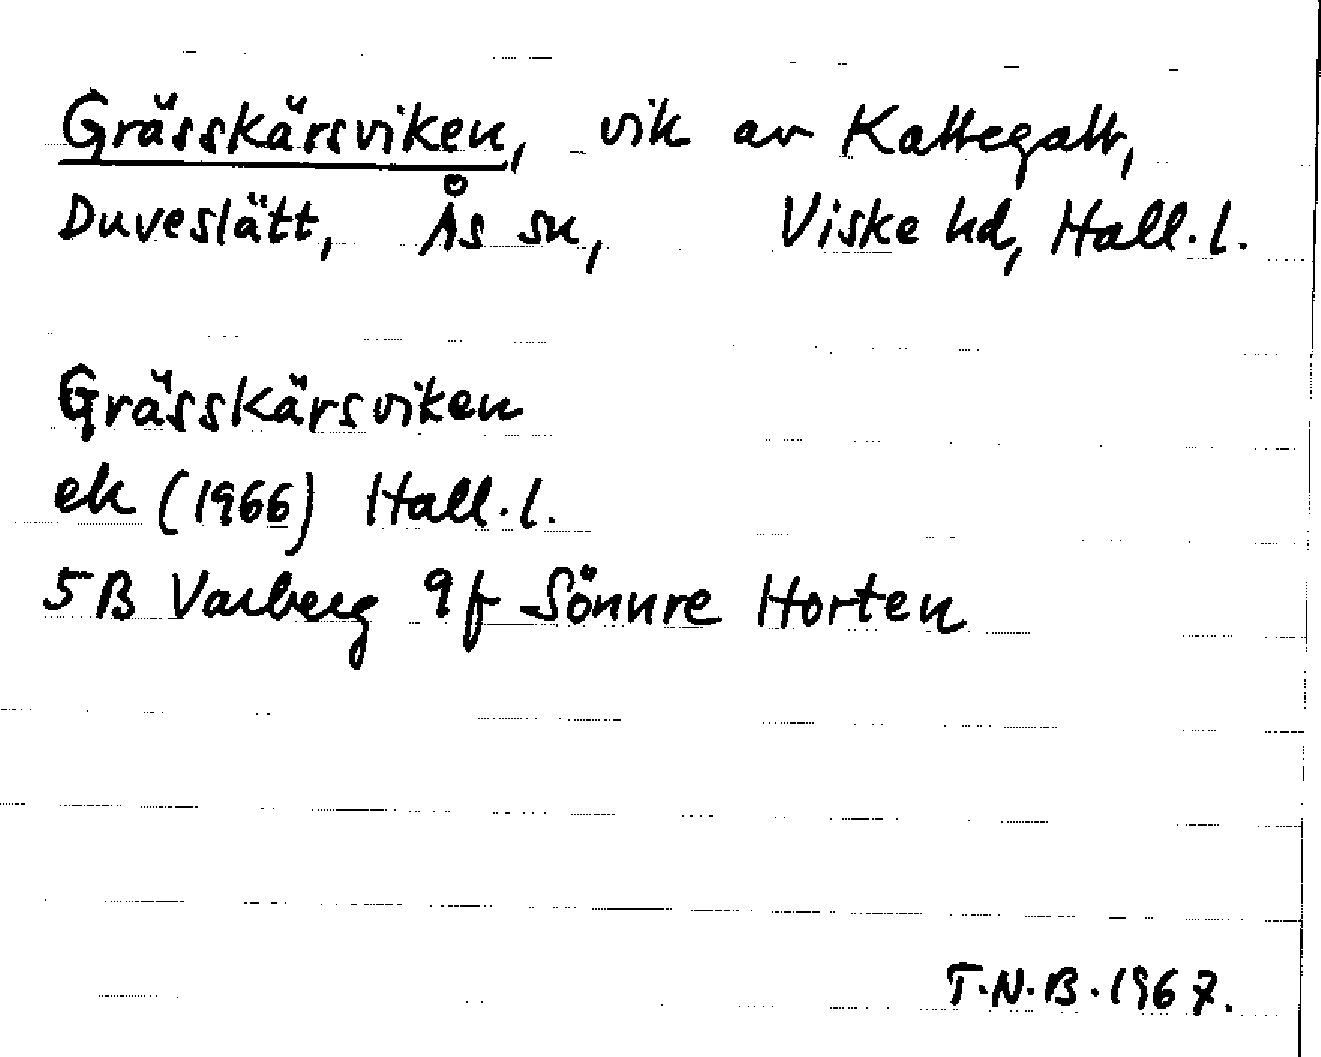 Grässkärsviken, vik av Kattegatt,
Duveslätt, Ås sn, Viske hd, Hall. l.
Grässkärsviken
ek (1966) Hall. l.
5B Varberg 9f Sönnre Horten
T.N.B. 1967.